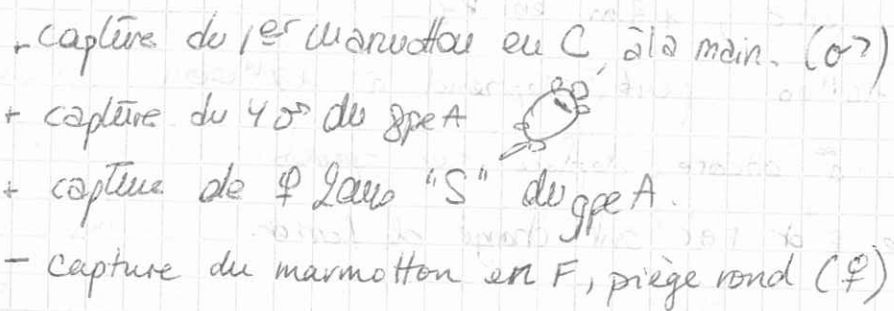 + capture du 1er marmotton en C, à la main. (♂)
+ capture du Y ♂ du gpe A
+ capture de ♀ 2ans "S" du gpe A.
- capture du marmotton en F, piège rond (♀)